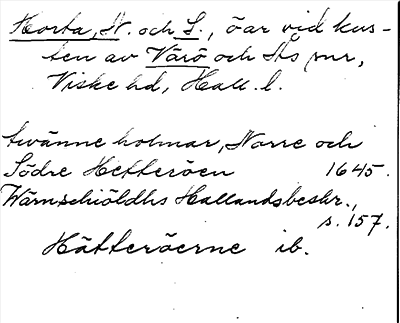 Horta, N. och S., öar vid kus-
ten av Värö och Ås snr,
Viske hd, Hall. l.
twänne holmar, Norre och
Södre Hetteröen 1645.
Wärnschiöldhs Hallandsbeskr.,
s. 157.
Hätteröerne ib.